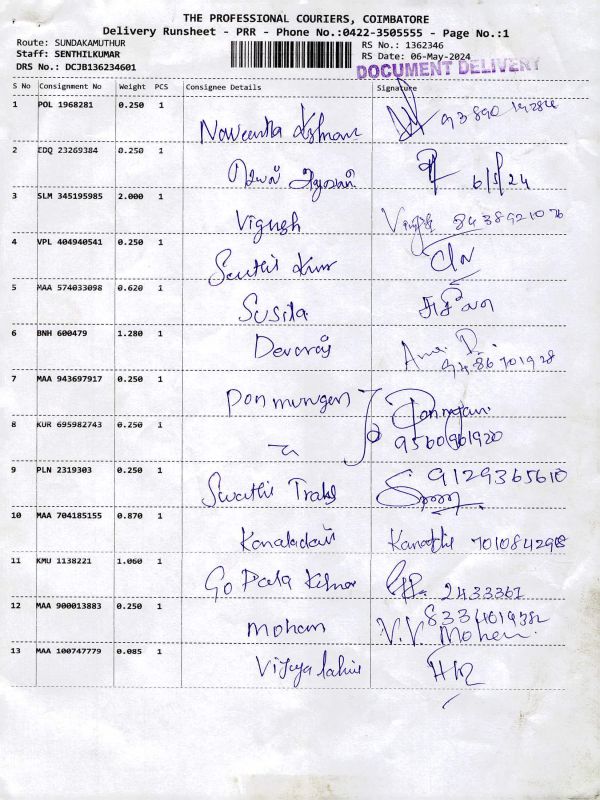 THE PROFESSIONAL COURIERS, COIMBATORE
Delivery Runsheet - PRR - Phone No.:0422-3505555 - Page No.:1
Route: SUNDAKAMUTHUR
RS No.: 1362346
Staff: SENTHILKUMAR
RS Date: 06-May-2024
DRS No.: DCJB136234601
DOCUMENT DELIVERY
S No Consignment No Weight PCS Consignee Details Signature
1 POL 1968281 0.250 1
2 EDQ 23269384 0.250 1 6/5/24
3 SLM 345195985 2.000 1 Vignesh 8438921076
4 VPL 404940541 0.250 1 Senthil Kumar
5 MAA 574033098 0.620 1 Susila சுசீலா
6 BNH 600479 1.280 1 Devaraj
9486701928
7 MAA 943697917 0.250 1 Ponmurugan
8 KUR 695982743 0.250 1 9560961920
9 PLN 2319303 0.250 1 Swathi 9129365610
10 MAA 704185155 0.870 1 7010842918
11 KMU 1138221 1.060 1 Gopala 2433361
12 MAA 900013883 0.250 1 mohan V.V Mohan
13 MAA 100747779 0.085 1